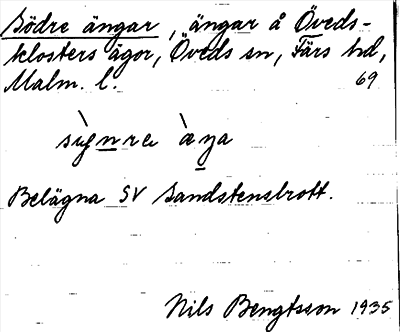 Södre ängar, ängar å Öveds-
klosters ägor, Öveds sn, Färs hd,
Malm. l. 69
Belägna SV Sandstensbrott.
Nils Bengtsson 1935